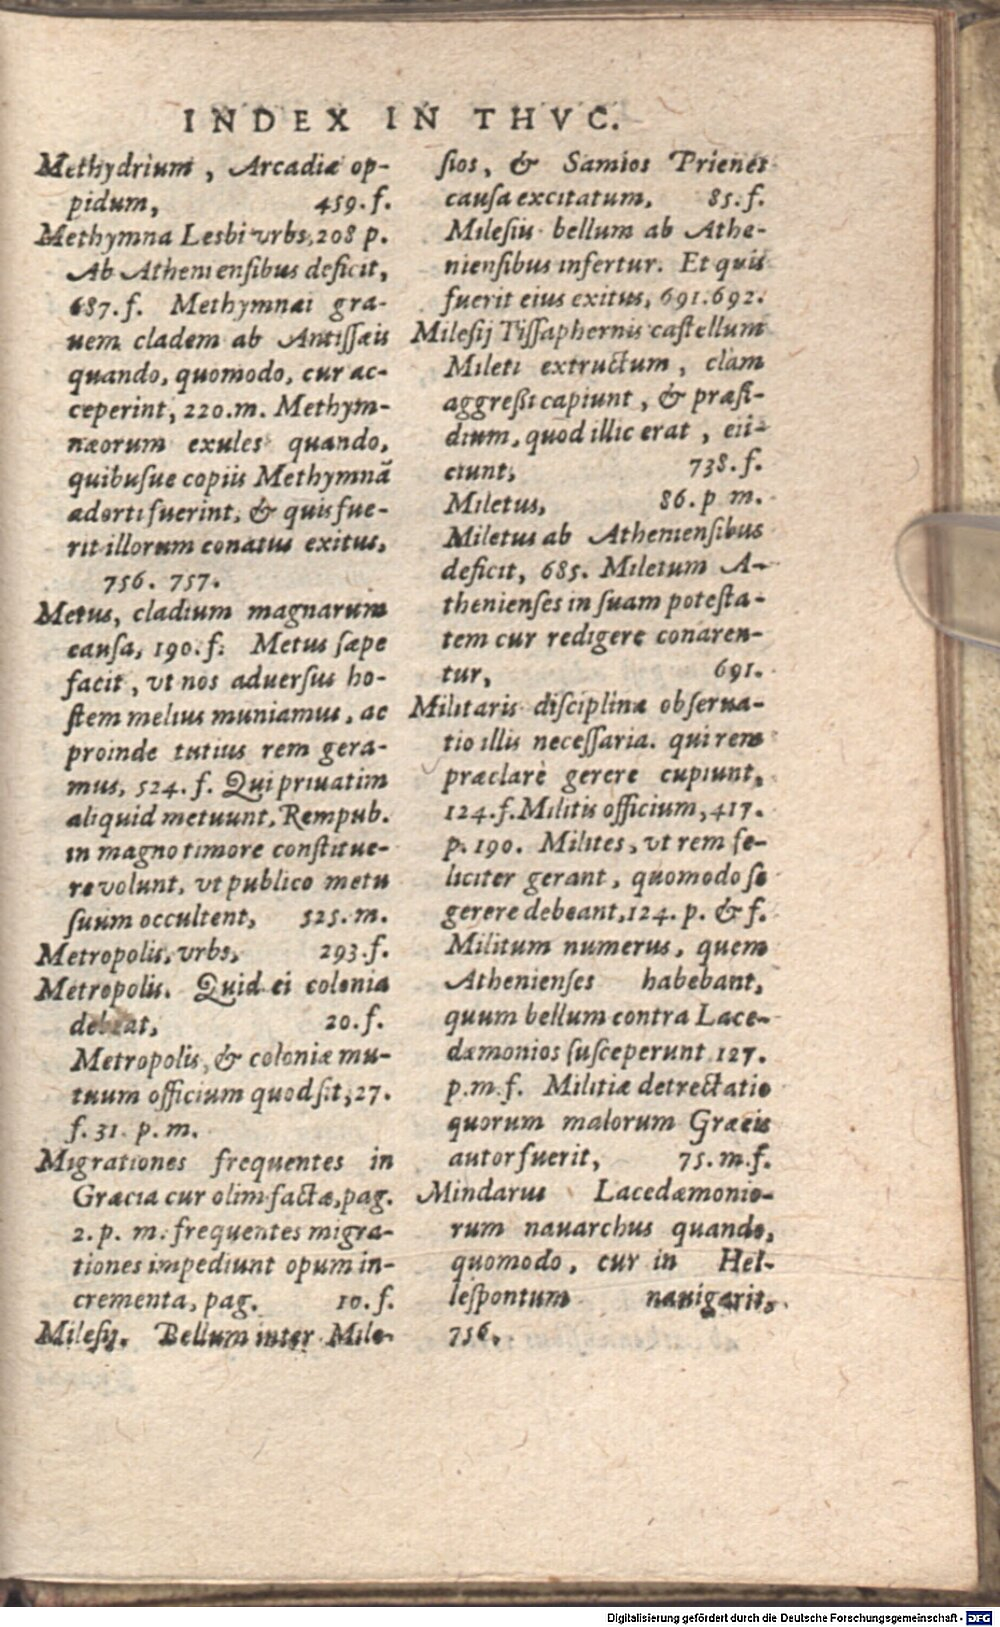 INDEX IN THVC.
Methydrium, Arcadiæ op-
pidum, 459.f.
Methymna Lesbi vrbs, 208 p.
Ab Atheniensibus deficit,
687.f. Methymnæi gra-
uem cladem ab Antissæis
quando, quomodo, cur ac-
ceperint, 220.m. Methym-
næorum exules quando,
quibusue copiis Methymnā
adorti fuerint, & quis fue-
rit illorum conatus exitus,
756. 757.
Metus, cladium magnarum
causa, 190.f. Metus sæpe
facit, vt nos aduersus ho-
stem melius muniamus, ac
proinde tutius rem gera-
mus, 524. f. Qui priuatim
aliquid metuunt, Rempub.
in magno timore constitue-
re volunt, vt publico metu
suum occultent, 525. m.
Metropolis, vrbs, 293.f.
Metropolis. Quid ei colonia
debeat, 20.f.
Metropolis, & coloniæ mu-
tuum officium quod sit, 27.
f. 31. p. m.
Migrationes frequentes in
Græcia cur olim factæ, pag.
2. p. m. frequentes migra-
tiones impediunt opum in-
crementa, pag. 10.f.
Milesij. Bellum inter Mile-
sios, & Samios Prienes
causa excitatum, 85.f.
Milesiis bellum ab Athe-
niensibus infertur. Et quis
fuerit eius exitus, 691.692.
Milesij Tissaphernis castellum
Mileti extructum, clam
aggreßi capiunt, & præsi-
dium, quod illic erat, eii-
ciunt, 738.f.
Miletus, 86.p m.
Miletus ab Atheniensibus
deficit, 685. Miletum A-
thenienses in suam potesta-
tem cur redigere conaren-
tur, 691.
Militaris disciplinæ obserua-
tio illis necessaria. qui rem
præclarè gerere cupiunt,
124.f. Militis officium, 417.
p. 190. Milites, vt rem fe-
liciter gerant, quomodo se
gerere debeant, 124. p. & f.
Militum numerus, quem
Athenienses habebant,
quum bellum contra Lace-
dæmonios susceperunt 127.
p.m.f. Militiæ detrectatio
quorum malorum Græcis
autor fuerit, 75.m.f.
Mindarus Lacedæmonio-
rum nauarchus quando,
quomodo, cur in Hel-
lespontum nauigarit,
756.
Digitalisierung gefördert durch die Deutsche Forschungsgemeinschaft - DFG